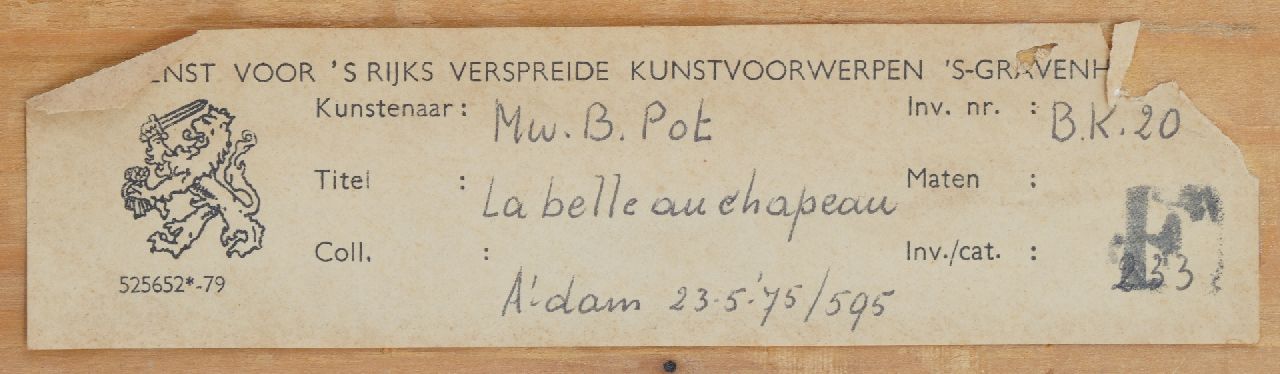 ENST VOOR 'S RIJKS VERSPREIDE KUNSTVOORWERPEN 'S-GRAVENH
Kunstenaar: Mw. B. Pot Inv. nr. : B.K. 20
Titel : La belle au chapeau Maten :
Coll. : A'dam 23-5-'75/595 Inv./cat. : F 233
525652*-79